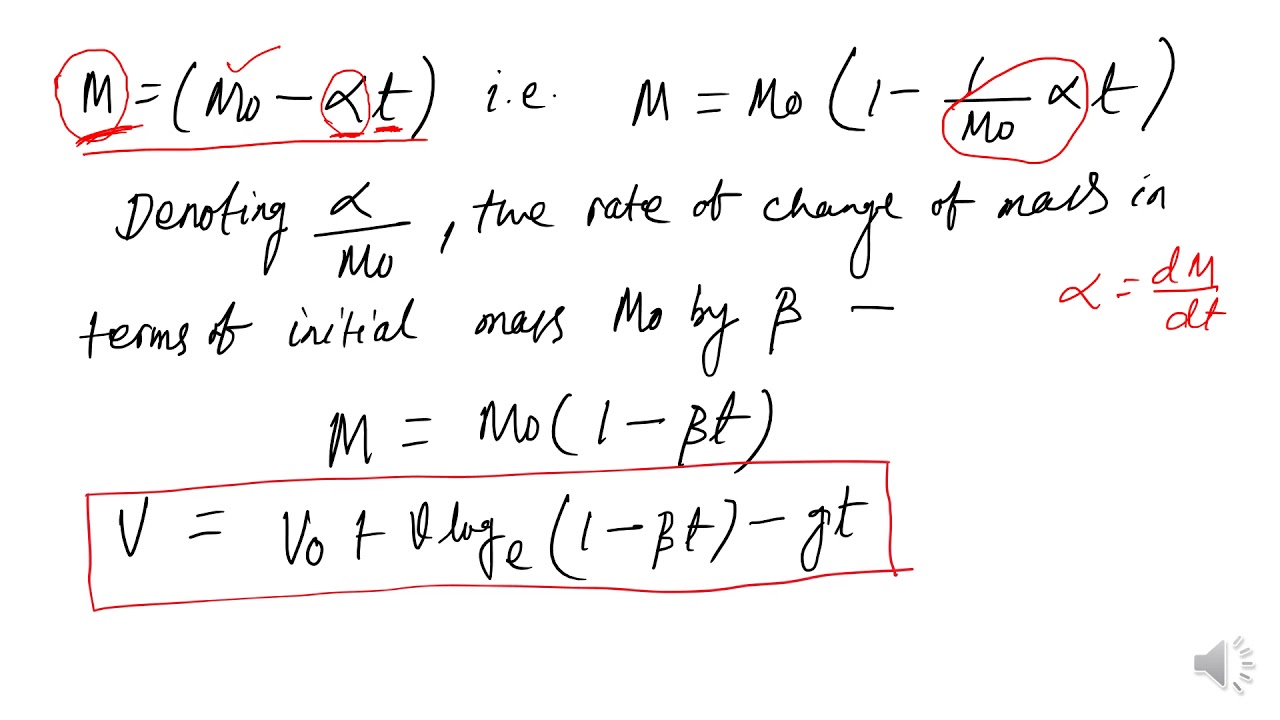 M = (M₀ − αt) i.e. M = M₀ (1 − 1/M₀ αt)
Denoting α/M₀, the rate of change of mass in
α = dM/dt
terms of initial mass M₀ by β —
M = M₀(1 − βt)
V = V₀ + v logₑ (1 − βt) − gt